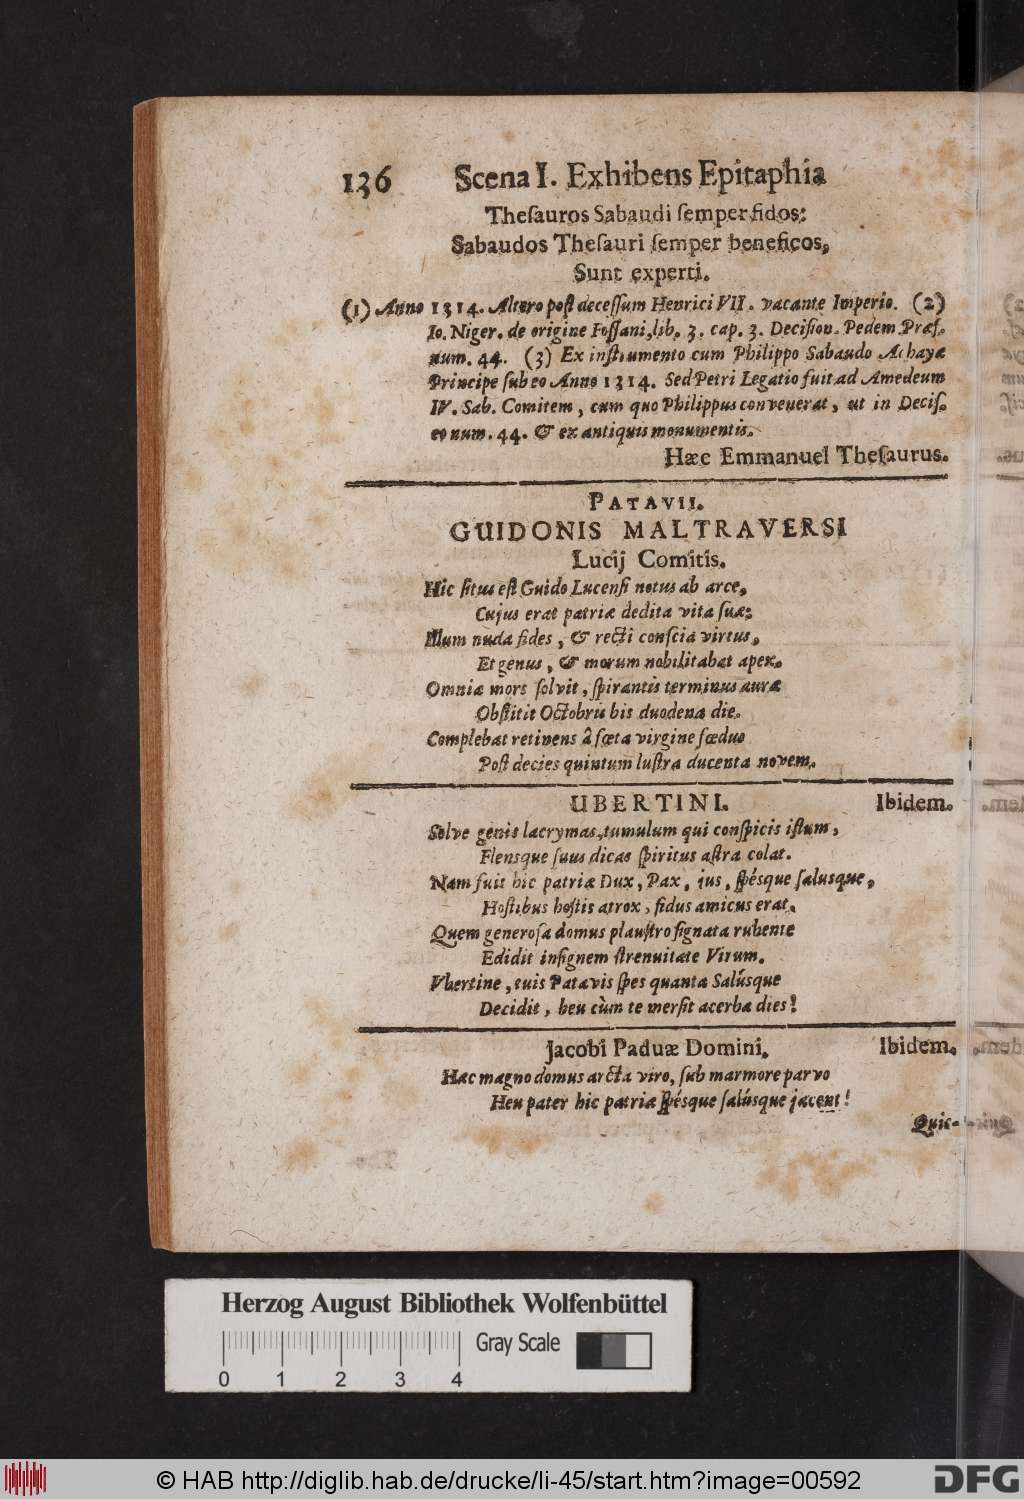 136 Scena I. Exhibens Epitaphia
Theſauros Sabaudi ſemper fidos:
Sabaudos Theſauri ſemper beneficos,
Sunt experti.
(1) Anno 1314. Altero poſt deceſſum Henrici VII. vacante Imperio. (2)
Io. Niger. de origine Foſſani, lib. 3. cap. 3. Deciſion. Pedem. Præſ.
num. 44. (3) Ex inſtrumento cum Philippo Sabaudo Achayæ
Principe ſub eo Anno 1314. Sed Petri Legatio fuit ad Amedeum
IV. Sab. Comitem, cum quo Philippus convenerat, ut in Deciſ.
eo num. 44. & ex antiquis monumentis.
Hæc Emmanuel Theſaurus.
PATAVII.
GUIDONIS MALTRAVERSI
Lucij Comitis.
Hic ſitus eſt Guido Lucenſi notus ab arce,
Cujus erat patriæ dedita vita ſuæ;
Illum nuda fides, & recti conſcia virtus,
Et genus, & morum nobilitabat apex.
Omnia mors ſolvit, ſpirantis terminus auræ
Obſtitit Octobris bis duodena die.
Complebat retinens â fœta virgine fœdus
Poſt decies quintum luſtra ducenta novem.
UBERTINI. Ibidem.
Solve genis lacrymas, tumulum qui conſpicis iſtum,
Flensque ſuus dicas ſpiritus aſtra colat.
Nam fuit hic patriæ Dux, Pax, jus, ſpésque ſalusque,
Hoſtibus hoſtis atrox, fidus amicus erat.
Quem generoſa domus plauſtro ſignata rubente
Edidit inſignem ſtrenuitate Virum.
Vbertine, tuis Patavis ſpes quanta Salúsque
Decidit, heu cùm te merſit acerba dies!
Jacobi Paduæ Domini. Ibidem.
Hac magno domus arcta viro, ſub marmore parvo
Heu pater hic patriæ ſpésque ſalúsque jacent!
Quic-
Herzog August Bibliothek Wolfenbüttel
Gray Scale
0 1 2 3 4
© HAB http://diglib.hab.de/drucke/li-45/start.htm?image=00592
DFG